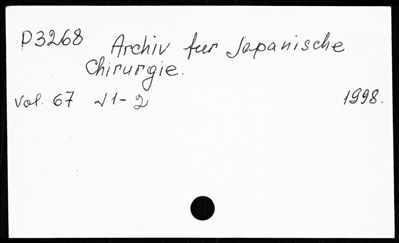 D3268 Archiv fur Japanische
Chirurgie.
vol. 67 N1-2 1998.